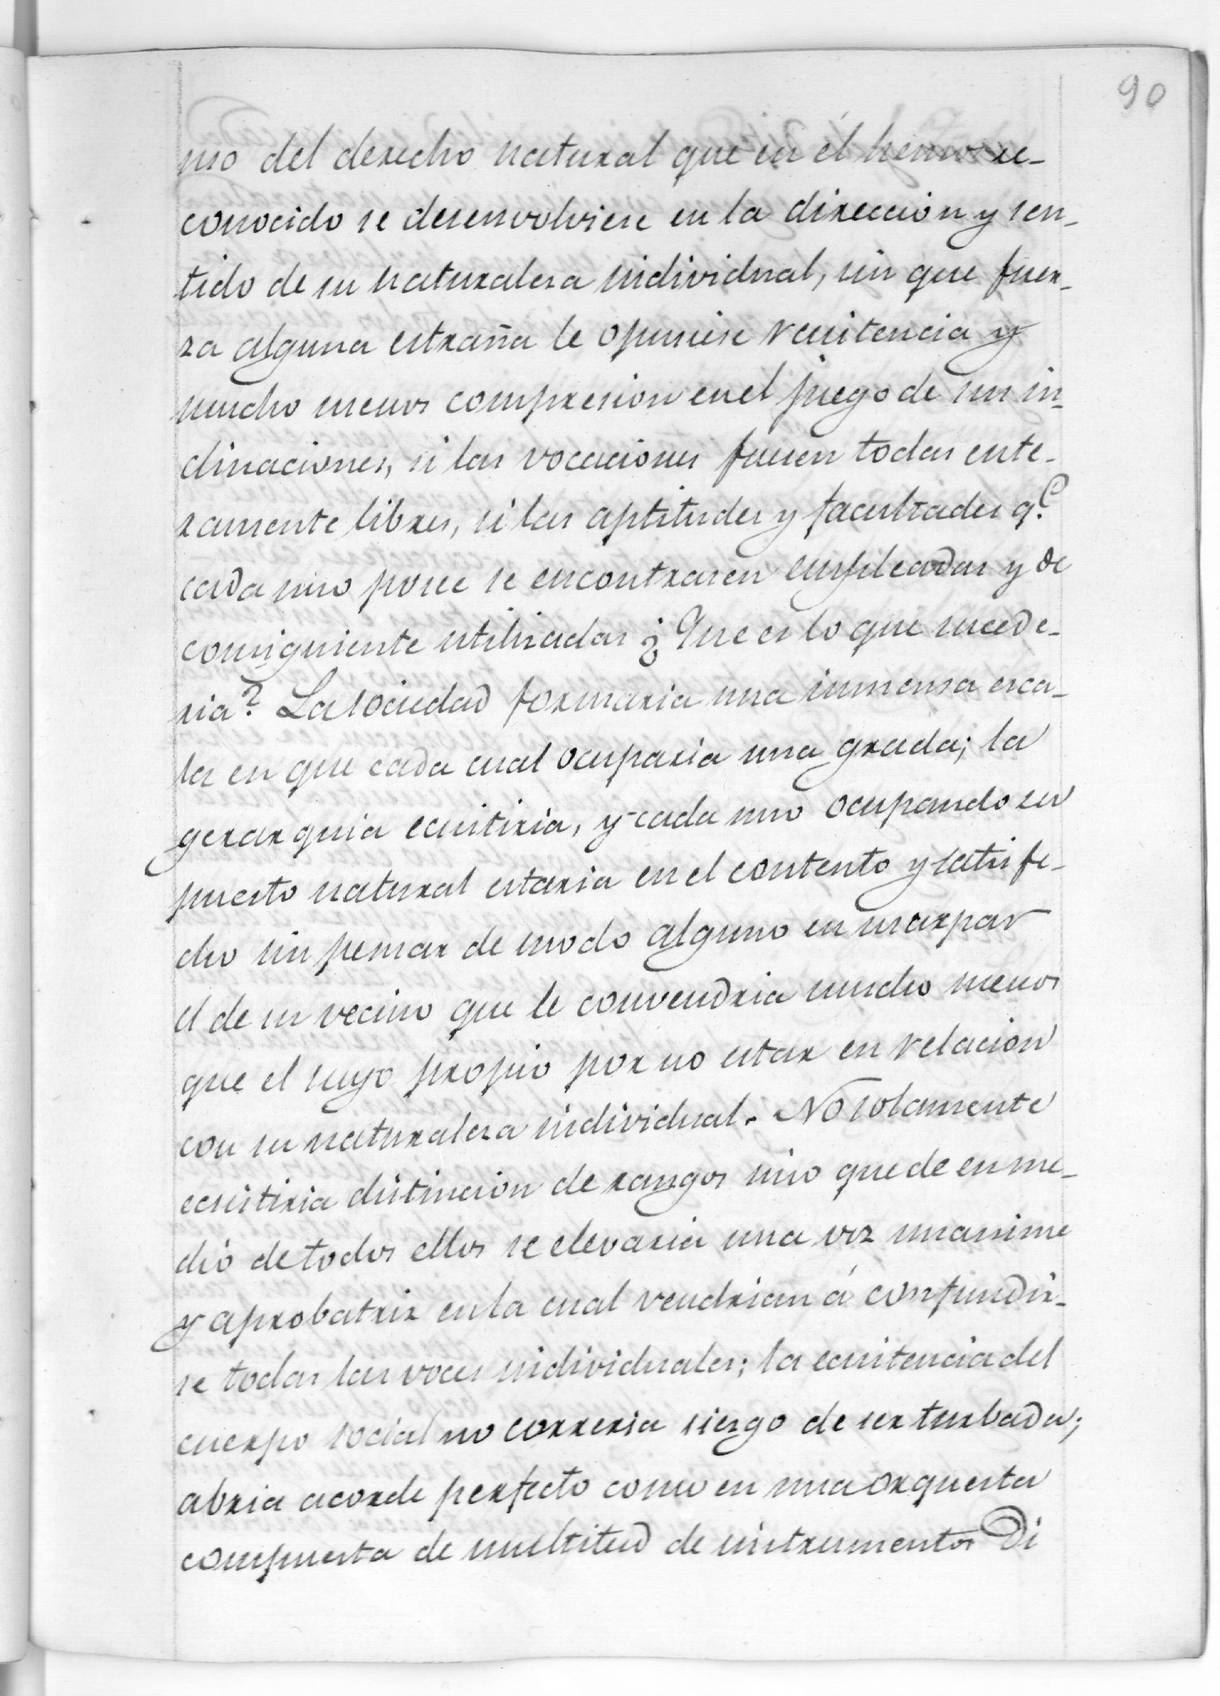 90
mo del derecho natural que en él hemos re-
conocido se desenvolviese en la direccion y sen-
tido de su naturaleza individual, sin que fuer-
za alguna estraña le opusiese resistencia y
mucho menos compresion en el juego de sus in-
clinaciones, si las vocaciones fuesen todas ente-
ramente libres, si las aptitudes y facultades q.e
cada uno posee se encontrasen empleadas y de
consiguiente utilizadas ¿Que es lo que sucede-
ria? La sociedad formaria una inmensa esca-
la en que cada cual ocuparia una grada; la
gerarquia ecsistiria, y cada uno ocupando su
puesto natural estaria en el contento y satisfe-
cho sin pensar de modo alguno en usurpar
el de su vecino que le convendria mucho menos
que el suyo propio por no estar en relacion
con su naturaleza individual. No solamente
ecsistiria distincion de rangos sino que de en me-
dio de todos ellos se elevaria una voz unanime
y aprobatriz en la cual vendrian á confundir-
se todas las voces individuales; la ecsistencia del
cuerpo social no correria riesgo de ser turbada;
abria acorde perfecto como en una orquesta
compuesta de multitud de instrumentos di